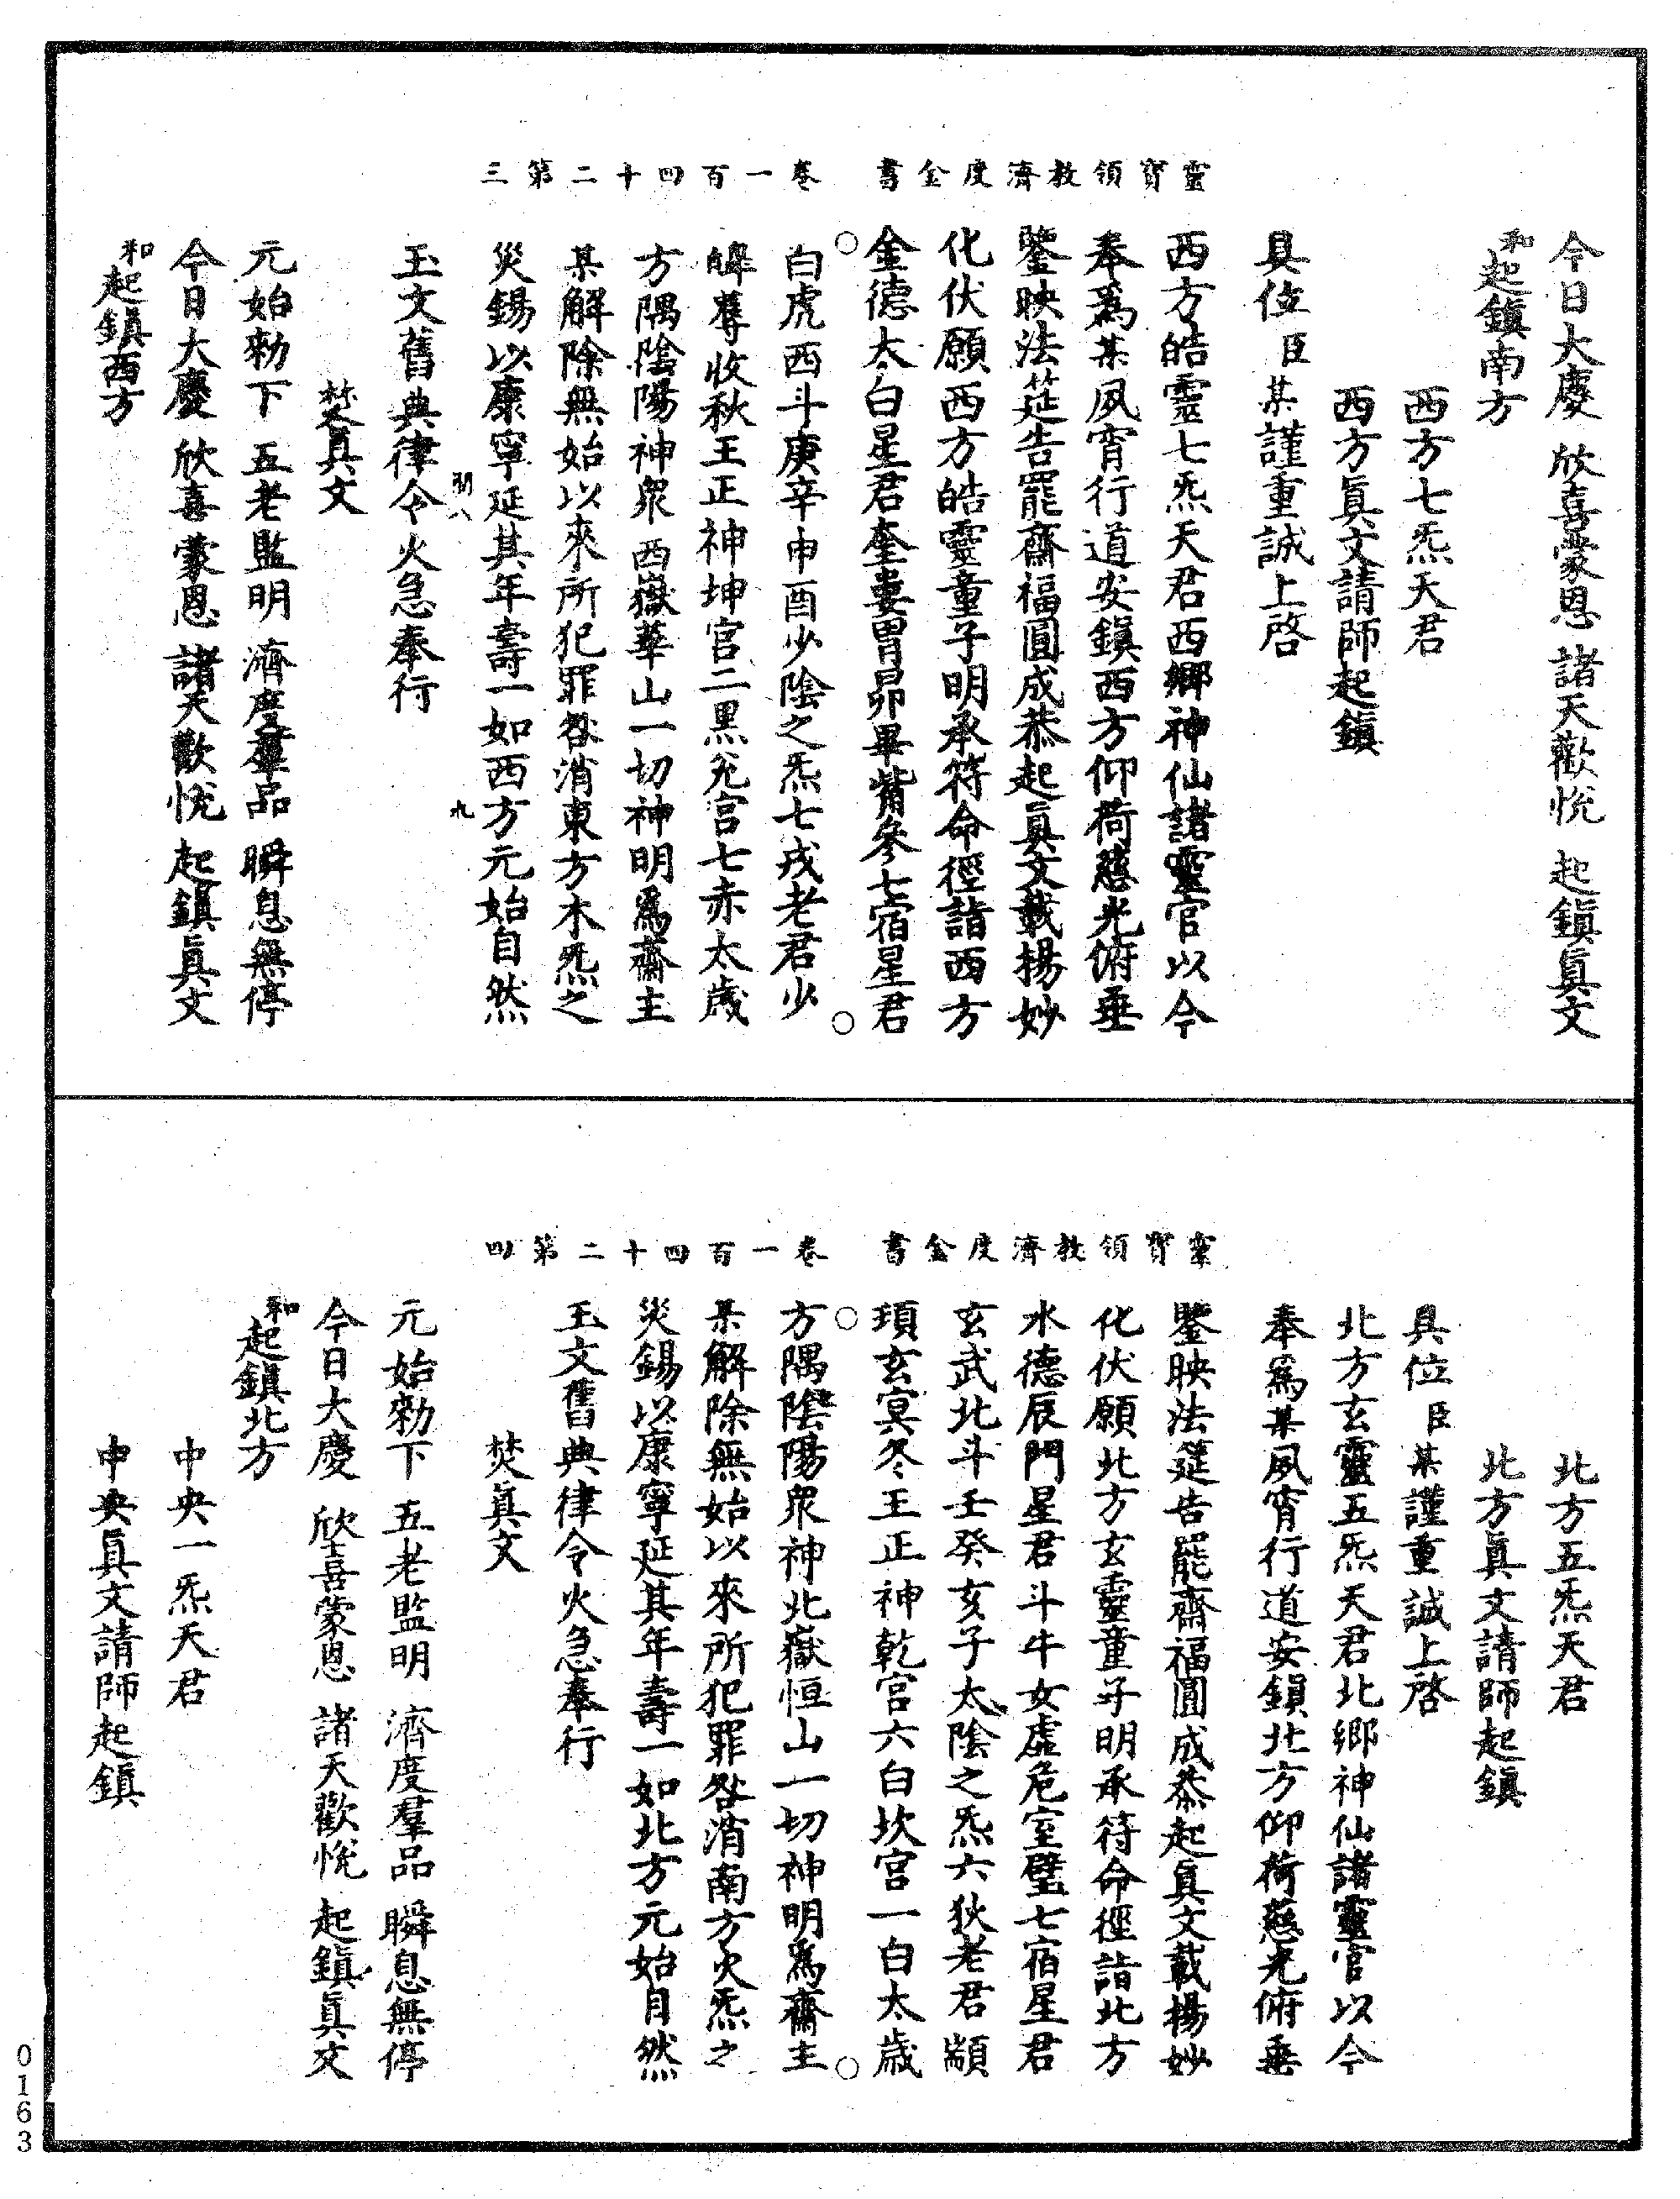 今日大慶　欣喜蒙恩　諸天歡悅　起鎮眞文
和起鎮南方
西方七炁天君
西方眞文請師起鎮
具位臣某謹重誠上啓
西方皓靈七炁天君西鄉神仙諸靈官以今
奉爲某夙宵行道安鎮西方仰荷慈光俯垂
鑒映法筵告罷齋福圓成恭起眞文載揚妙
化伏願西方皓靈童子明承符命徑詣西方
金德太白星君奎婁胃昴畢觜參七宿星君
靈寶領教濟度金書　卷一百四十二第三
白虎西斗庚辛申酉少陰之炁七戎老君少
皞蓐收秋王正神坤宮二黑兌宮七赤太歲
方隅陰陽神衆西嶽華山一切神明爲齋主
某解除無始以來所犯罪咎消東方木炁之
災錫以康寧延其年壽一如西方元始自然
九
玉文舊典律令火急奉行
焚眞文
元始勑下　五老監明　濟度羣品　瞬息無停
今日大慶　欣喜蒙恩　諸天歡悅　起鎮眞文
和起鎮西方
北方五炁天君
北方眞文請師起鎮
具位臣某謹重誠上啓
北方玄靈五炁天君北鄉神仙諸靈官以今
奉爲某夙宵行道安鎮北方仰荷慈光俯垂
鑒映法筵告罷齋福圓成恭起眞文載揚妙
化伏願北方玄靈童子明承符命徑詣北方
水德辰星君斗牛女虛危室壁七宿星君
玄武北斗壬癸亥子太陰之炁六狄老君顓
頊玄冥冬王正神乾宮六白坎宮一白太歲
靈寶領教濟度金書　卷一百四十二第四
方隅陰陽衆神北嶽恒山一切神明爲齋主
某解除無始以來所犯罪咎消南方火炁之
災錫以康寧延其年壽一如北方元始自然
玉文舊典律令火急奉行
焚眞文
元始勑下　五老監明　濟度羣品　瞬息無停
今日大慶　欣喜蒙恩　諸天歡悅　起鎮眞文
和起鎮北方
中央一炁天君
中央眞文請師起鎮
0163